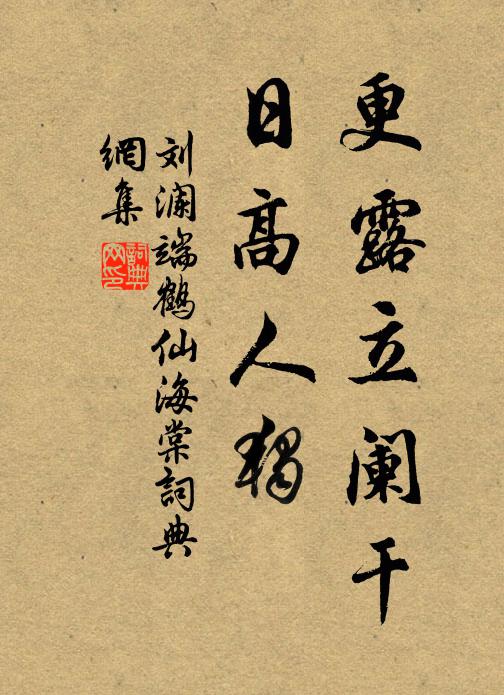 更露立阑干
日高人独
刘澜端鹤仙海棠詞典
網集
詞典
网印